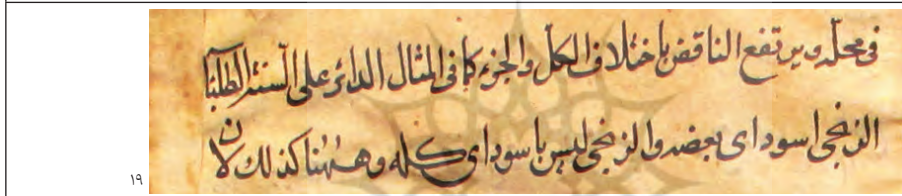 فی محله ویرتفع الناقض باختلاف الکل والجزء کما فی المثال الدائر علی السنة الطلبة
الزنجی اسود ای بعضه والزنجی لیس باسود ای کله وههنا کذلک لان
۱۹